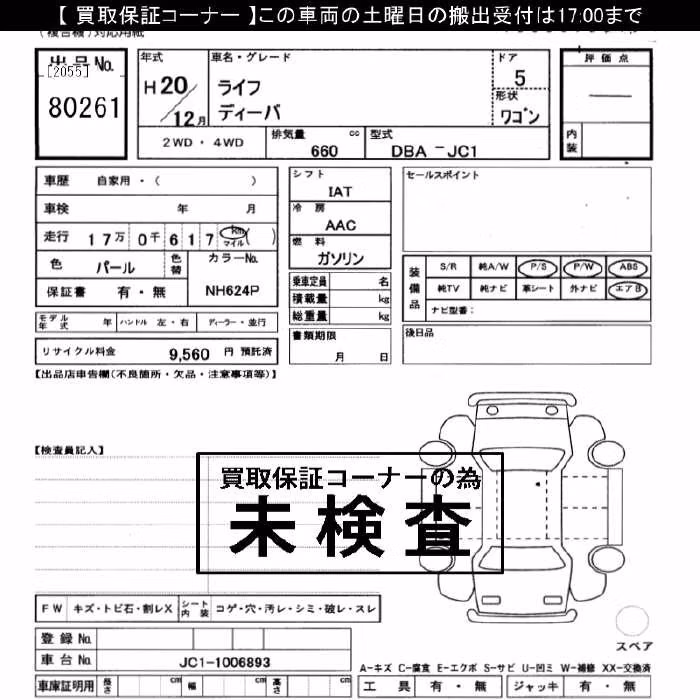 【 買取保証コーナー 】この車両の土曜日の搬出受付は17:00まで
出品No.
[2055]
80261
年式
H20/12月
車名・グレード
ライフ
ディーバ
ドア
5
形状
ワゴン
評価点
内装
2WD・4WD
排気量 cc
660
型式
DBA－JC1
車歴 自家用・( )
車検 年 月
走行 17万 0千 617 km マイル ( )
色 パール
色替
カラーNo.
NH624P
保証書 有・無
モデル年式 年 ハンドル 左・右 ディーラー・並行
リサイクル料金 9,560 円 預託済
シフト
IAT
冷房
AAC
燃料
ガソリン
乗車定員 名
積載量 kg
総重量 kg
書類期限
月 日
セールスポイント
装備品
S/R 純A/W P/S P/W ABS
純TV 純ナビ 革シート 外ナビ エアB
ナビ型番：
後日品
【出品店申告欄(不良箇所・欠品・注意事項等)】
【検査員記入】
買取保証コーナーの為
未検査
FW キズ・トビ石・割レX シート内装 コゲ・穴・汚レ・シミ・破レ・スレ
登録No.
車台No. JC1-1006893
車庫証明用 長さ cm 幅 cm 高さ cm
スペア
A-キズ C-腐食 E-エクボ S-サビ U-凹ミ W-補修 XX-交換済
工具 有・無 ジャッキ 有・無